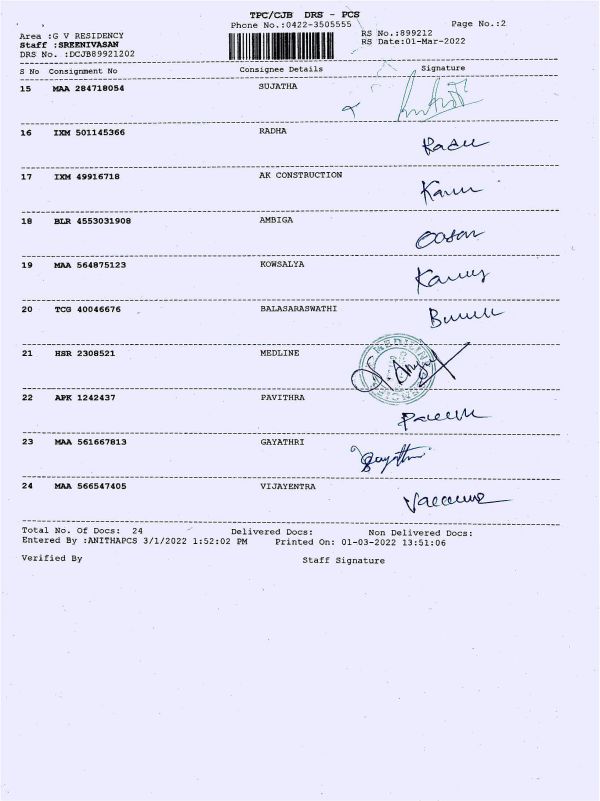 TPC/CJB DRS - PCS
Phone No.:0422-3505555
Page No.:2
Area :G V RESIDENCY
RS No.:899212
Staff :SREENIVASAN
RS Date:01-Mar-2022
DRS No. :DCJB89921202
S No Consignment No Consignee Details Signature
15 MAA 284718054 SUJATHA
16 IXM 501145366 RADHA
17 IXM 49916718 AK CONSTRUCTION
18 BLR 4553031908 AMBIGA
19 MAA 564875123 KOWSALYA
20 TCG 40046676 BALASARASWATHI
21 HSR 2308521 MEDLINE
22 APK 1242437 PAVITHRA
23 MAA 561667813 GAYATHRI Gayathri
24 MAA 566547405 VIJAYENTRA
Total No. Of Docs: 24 Delivered Docs: Non Delivered Docs:
Entered By :ANITHAPCS 3/1/2022 1:52:02 PM Printed On: 01-03-2022 13:51:06
Verified By Staff Signature